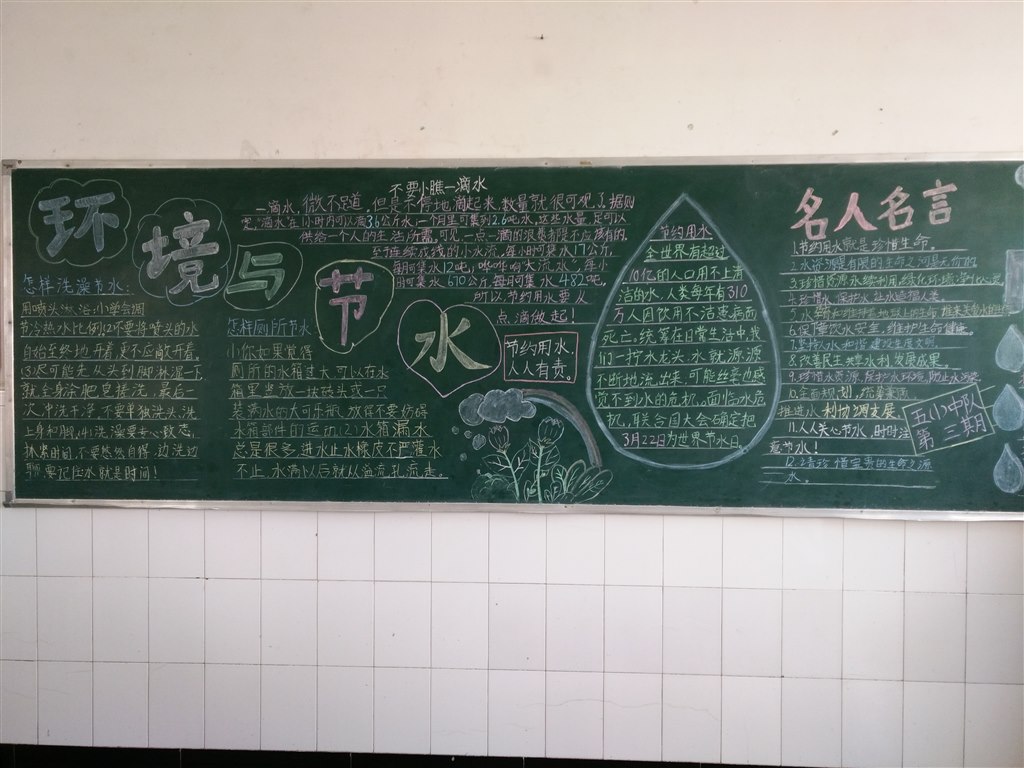 环境与节水
不要小瞧一滴水
一滴水,微不足道,但是不停地滴起来,数量就很可观了,据测
定,滴水在1小时内可以滴3.6公斤水,一个月里可集到2.6吨水,这些水量,足可以
供给一个人的生活所需,可见,一点一滴的浪费都不应该有的。
至于连续成线的小水流,每小时可集水17公斤,
每月可集水12吨,哗哗响大流水,每小
时可集水670公斤,每月可集水482吨。
所以,节约用水要从
点滴做起!
怎样洗澡节水:
用喷头淋浴:小学会调
节冷热水比例(2)不要将喷头的水
自始至终地开着,更不应敞开着。
(3)尽可能先从头到脚淋湿一下,
就全身涂肥皂搓洗,最后一
次冲洗干净,不要单独洗头、洗
上身和脚,(4)洗澡要专心致志,
抓紧时间,不要悠然自得,边洗边
聊,要记住水就是时间!
怎样厕所节水
小你如果觉得
厕所的水箱过大,可以在水
箱里竖放一块砖头或一只
装满水的大可乐瓶,放得不要妨碍
水箱部件的运动,(2)水箱漏水
总是很多,进水止水橡皮不严灌水
不止,水满以后就从溢流孔流走。
节约用水,
人人有责。
节约用水
全世界有超过
10亿的人口用不上清
洁的水,人类每年有310
万人因饮用不洁患病而
死亡,统筹在日常生活中,我
们一拧水龙头,水就源源
不断地流出来,可能丝毫也感
觉不到水的危机,面临水危
机,联合国大会确定把
3月22日为世界节水日。
名人名言
1.节约用水就是珍惜生命。
2.水资源是有限的生命之河是无价的
4.珍惜水,保护水,让水造福人类。
6.保障饮水安全,维护生命健康。
7.坚持人水和谐,建设生态文明。
8.改善民生共享水利发展成果。
9.珍惜水资源,保护水环境,防止水污染
10.全面规划,统筹兼顾
推进人水利协调发展
11.人人关心节水,时时注
意节水!
12.请珍惜宝贵的生命之源
水。
五(1)中队
第三期